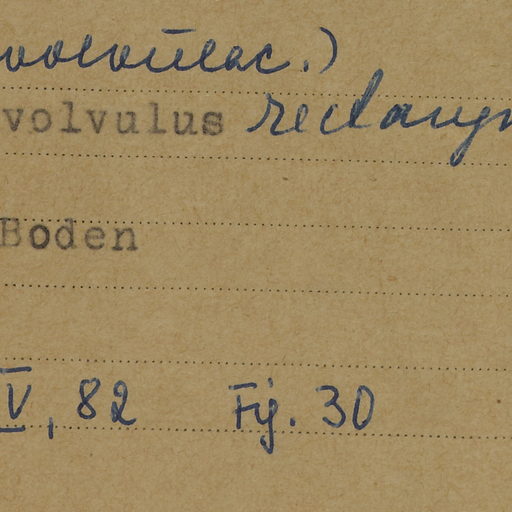 volvulac.)
volvulus
Boden
IV, 82 Fig. 30